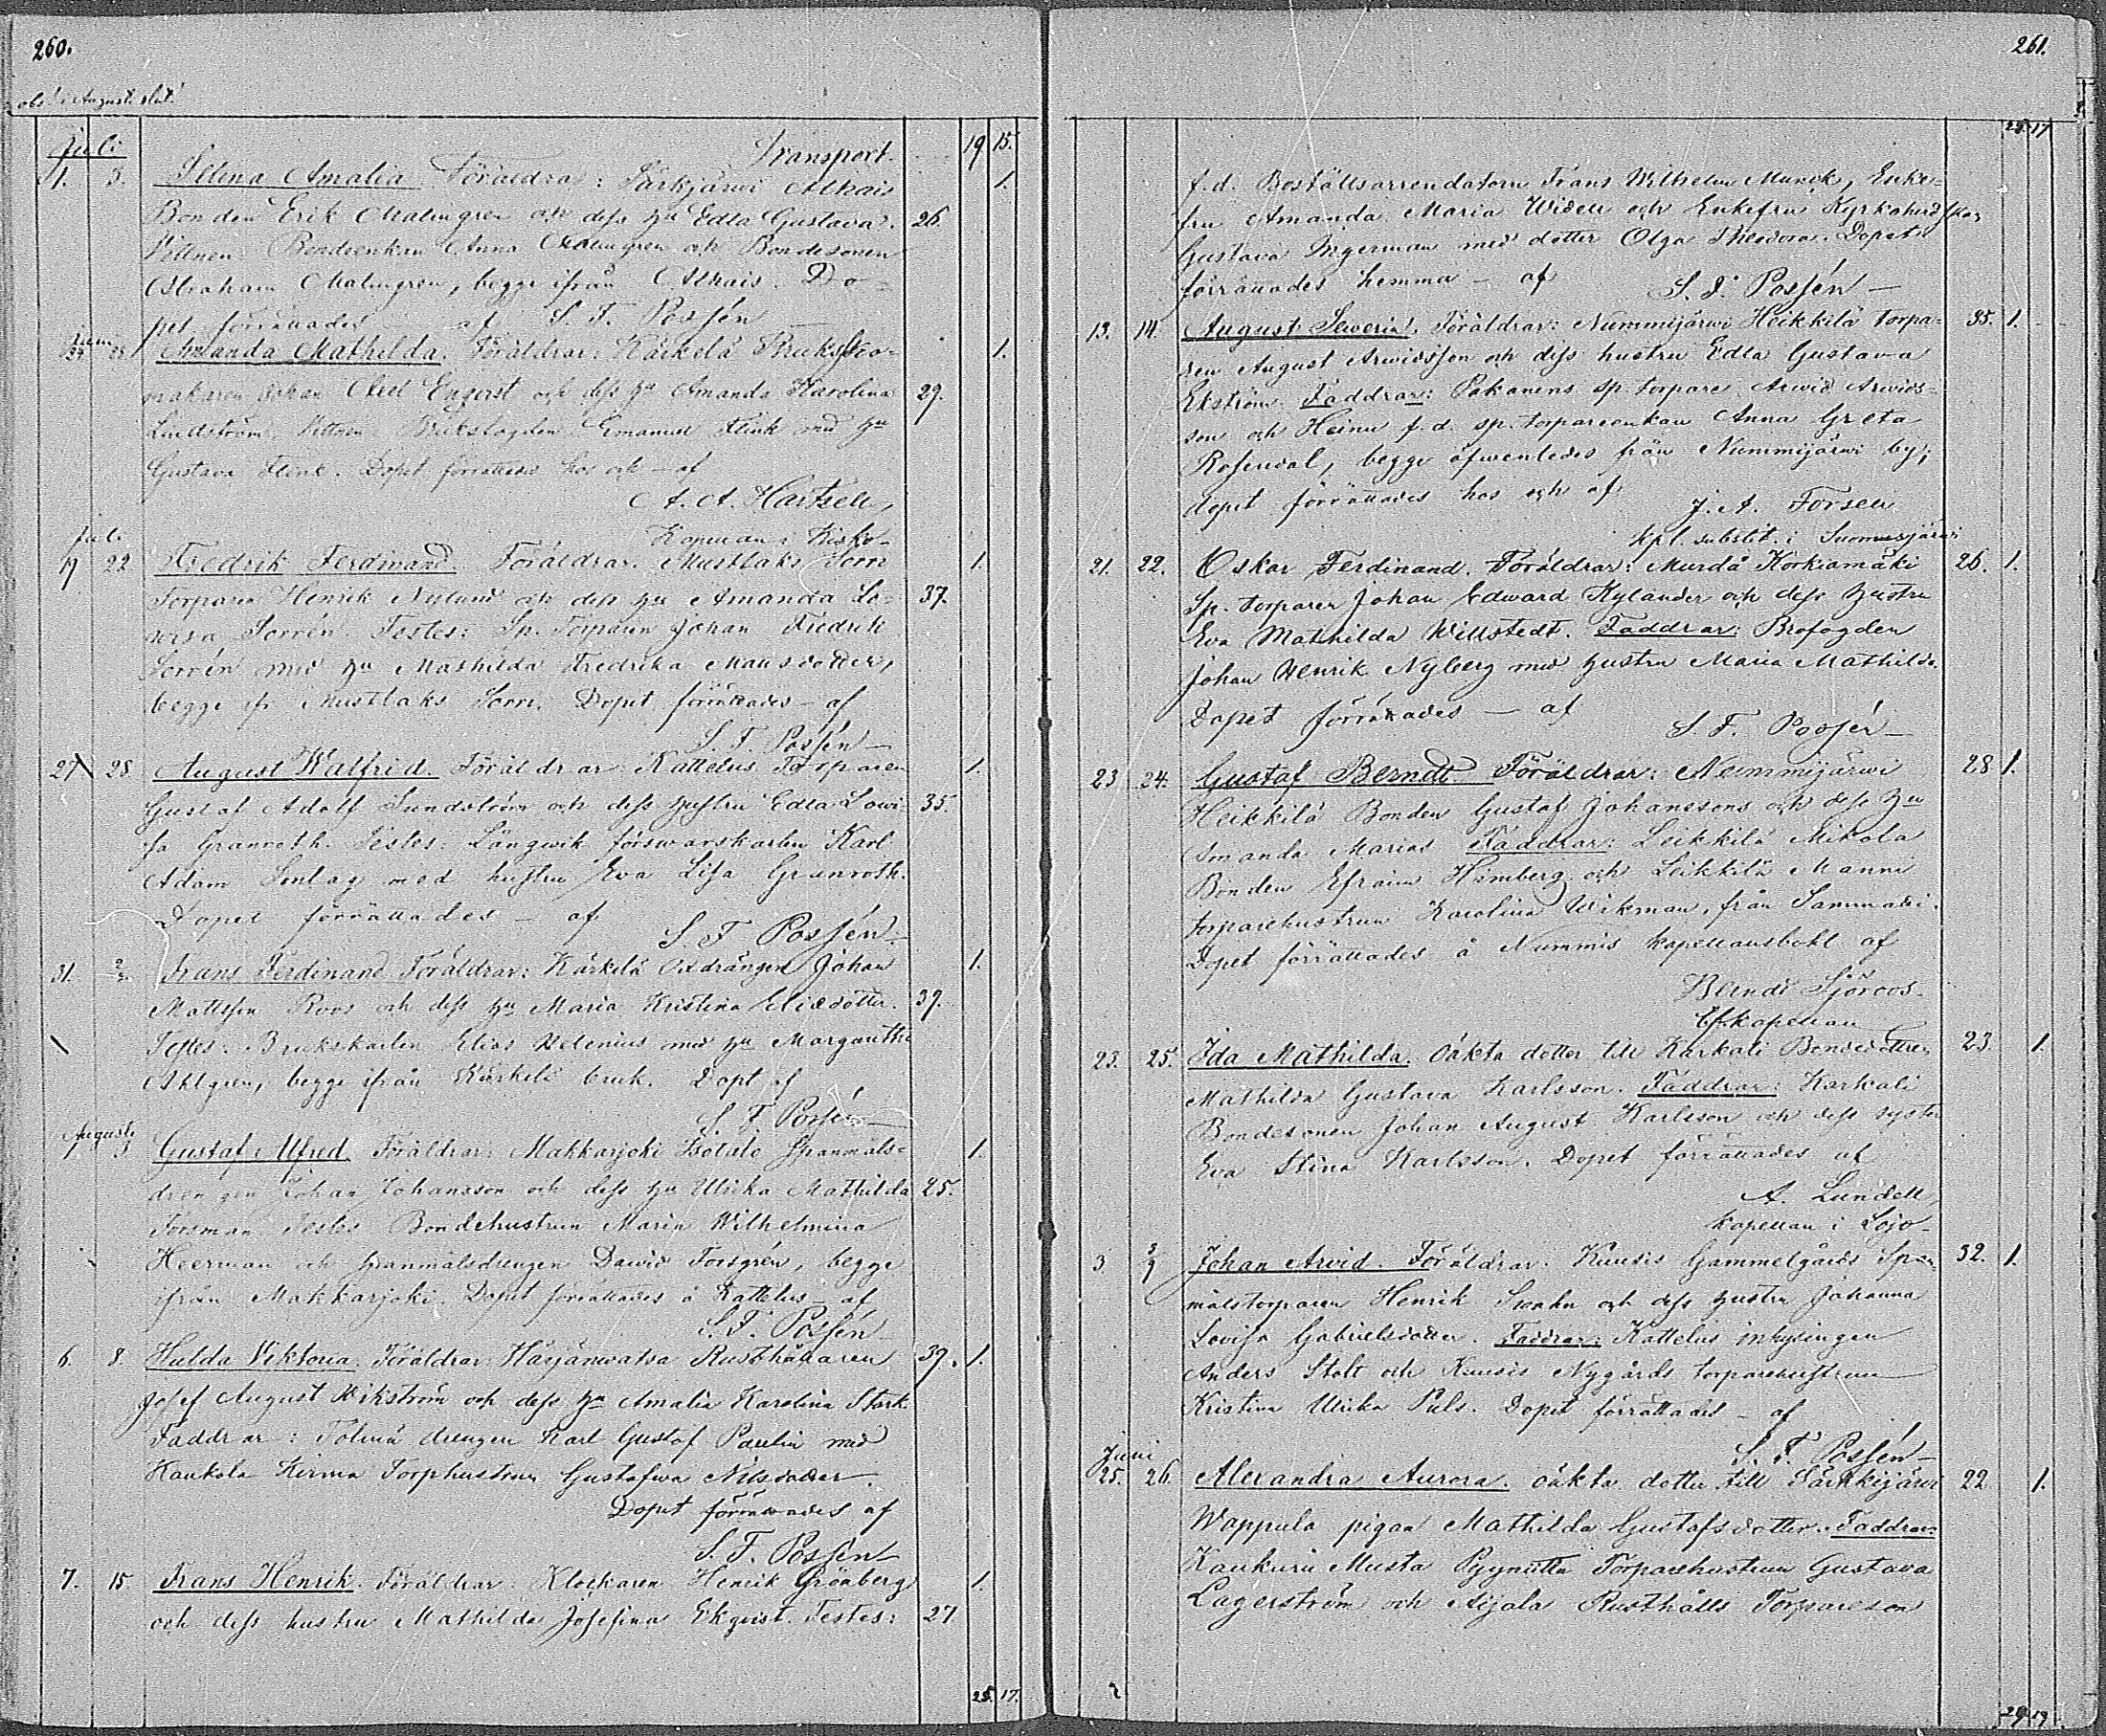 260.
obs! i Augusti slut!
Juli
Transport. 19 15.
1. 3. Selina Amalia Föräldrar: Särkjärwi Alhais 1.
Bonden Erik Malmgren och dess hu Edla Gustava. 26.
Vittnen Bondeenkan Anna Malmgren och Bondesonen
Abraham Malmgren, begge ifrån Alhais. Do-
pet förrättades af S. F. Possén
Juni
Amanda Mathilda. Föräldrar: Kärkelä Bruks Sko- 1.
makaren Johan Engerst och dess hu Amanda Karolina 29.
Lindström. Vittnen Emanuel Flink med hu
Gustava Flink. Dopet förrättades hos och – af
A. A. Hartzell,
Kapellan i Kisko
Juli
19 22 Fredrik Ferdinand. Föräldrar. Mustlaks Sorri 1.
Torparen Henrik Nylund och dess hu Amanda Lo- 37.
Sorrén. Testes: Sp. Torparen Johan Fredrik
Sorrén med hu Mathilda Fredrika Mansdotter,
begge ifr Mustlaks Sorri. Dopet förrättades – af
S. F. Possén –
27 28. August Walfrid. Föräldrar Kattelus Torparen 1.
Gustaf Adolf Sundström och dess hustru Edla Lowi- 35.
sa Granroth. Testes: Långwik förswarskarlen Karl
Adam med hustru Eva Lisa Granroth.
Dopet förrättades – af
S. F. Possén –
31. 2 Frans Ferdinand Föräldrar: Kärkelä Johan 1.
Mattsson Roos och dess hu Maria Kristina Eliædotter. 39.
Testes. Brukskarlen Elias Helenius med hu Margaretha
Ahlgren, begge ifrån Kärkelä bruk. Döpt af
S. F. Possén –
Augusti
1 3 Gustaf Alfred. Föräldrar: Makkarjoki Isotalo Spanmåls- 1.
drengen Johan Johansson och dess hu Ulrika Mathilda 25.
Forsman Testes Bondehustrun Maria Wilhelmina
Heerman och spanmålsdrengen Dawid Forsgrén, begge
ifrån Makkarjoki. Dopet förrättades å Kattelus – af
S. F. Possén
6. 8. Hulda Viktoria. Föräldrar Härjänwatsa Rusthållaren 39. 1.
Josef August Wikström och dess hu Amalia Karolina Stark.
Faddrar: Tolmä drengen Karl Gustaf Paulin med
Kaukola Kirma Torphustrun Gustafwa Nilsdotter.
Dopet förrättades af
S. F. Possén
7. 15. Frans Henrik. Föräldrar: Klockaren Henrik Grönberg 1.
och dess hustru Mathilda Josefina Ekqvist. Testes: 27.
25. 17.
261.
25. 17
f.d. Boställsarrendatorn Frans Wilhelm Munck, Enke-
fru Amanda Maria Widell och Enkefru Kyrkoherdskan
Gustava Ingerman med dotter Olga Theodora. Dopet
förrättades hemma – af
S. F. Possén –
13. 14. August Severin. Föräldrar: Nummijärwi Heikkilä Torpa- 35. 1.
ren August Arwidsson och dess hustru Edla Gustava
Ekström. Faddrar: Pakanens sp. torpare Arwid Arwids-
son och Heinu f.d. sp. torpareenkan Anna Greta
Rosendal, begge äfwenledes från Nummijärwi by;
dopet förrättades hos och af
J. A. Forsell
kpl. substit. i Suomusjärwi
21. 22. Oskar Ferdinand. Föräldrar: Murdå Korkiamäki 26. 1.
Sp. torparen Johan Edward Kylander och dess hustru
Eva Mathilda Willstedt. Faddrar: Brofogden
Johan Henrik Nyberg med hustru Maria Mathilda.
Dopet förrättades – af
S. F. Possén –
23 24. Gustaf Berndt Föräldrar: Nummijärwi 28 1.
Heikkilä Bonden Gustaf Johanssons och dess hu
Amanda Marias Faddrar: Leikkilä Mikola
Bonden Efraim Himberg och Leikkilä Manni
torparehustrun Karolina Wikman, från Sammatti.
Dopet förrättades å Nummis kapellansbohl af
Berndt Sjöroos.
kapellan
23. 25. Ida Mathilda. Oäkta dotter till Karkali Bondedottren 23. 1.
Mathilda Gustava Karlsson. Faddrar: Karkali
Bondesonen Johan August Karlsson och dess syster
Eva Stina Karlsson. Dopet förrättades af
A. Lundell
kapellan i Lojo
3. 3/9 Johan Arvid. Föräldrar. Kuusis Gammelgårds Span- 32. 1.
målstorparen Henrik Swahn och dess hustru Johanna
Lovisa Gabrielsdotter. Faddrar: Kattelus inhysingen
Anders Stolt och Kuusis Nygårds torparehustrun
Kristina Ulrika Puls. Dopet förrättades – af
S. F. Possén –
Juni
25. 26. Alexandra Aurora. oäkta dotter till Särkkijärwi 22 1.
Wappula pigan Mathilda Gustafsdotter. Faddrar:
Kaukuri Musta Torparehustrun Gustava
Lagerström och Aijala Rusthålls Torpareson
29. 19.